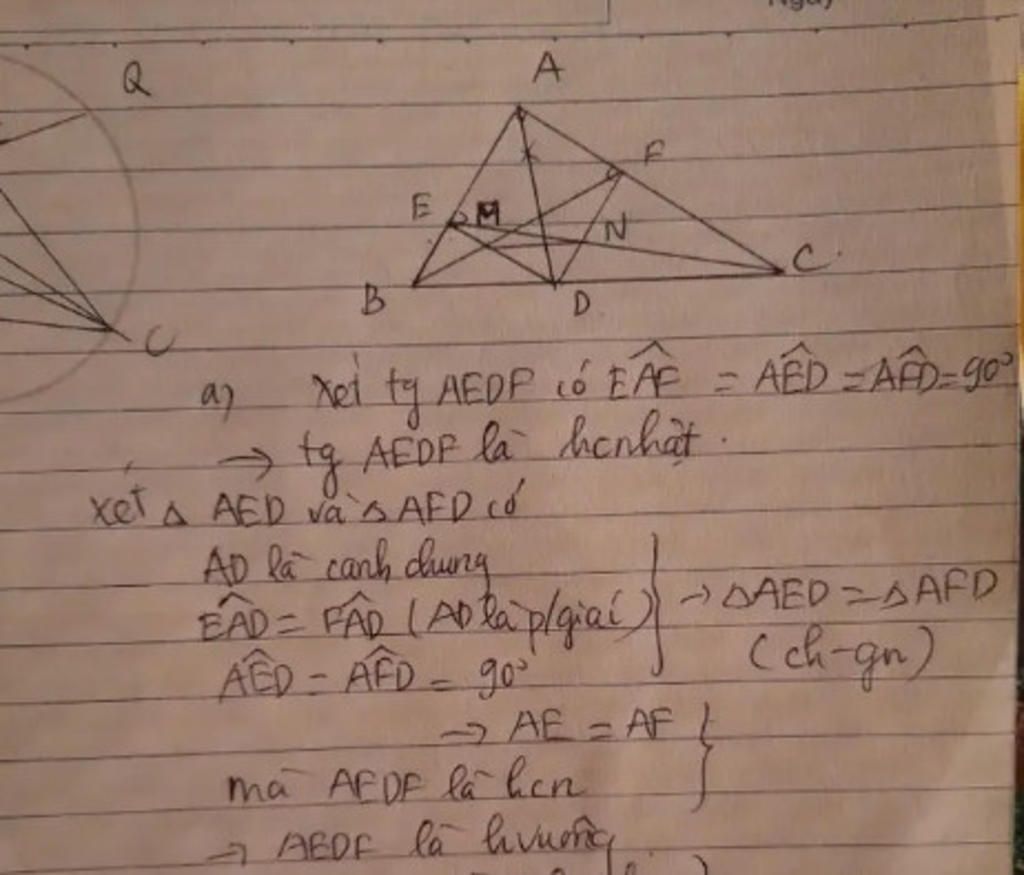 Q
A
F
E M
N
C
B
D
C
a) Xét tg AEDF có EÂF = AÊD = AF̂D = 90°
→ tg AEDF là hcnhật.
Xét Δ AED và Δ AFD có
AD là cạnh chung
EÂD = FÂD (AD là p/giác)
→ ΔAED = ΔAFD
AÊD = AF̂D = 90°
(ch-gn)
→ AE = AF
mà AEDF là hcn
→ AEDF là hvuông